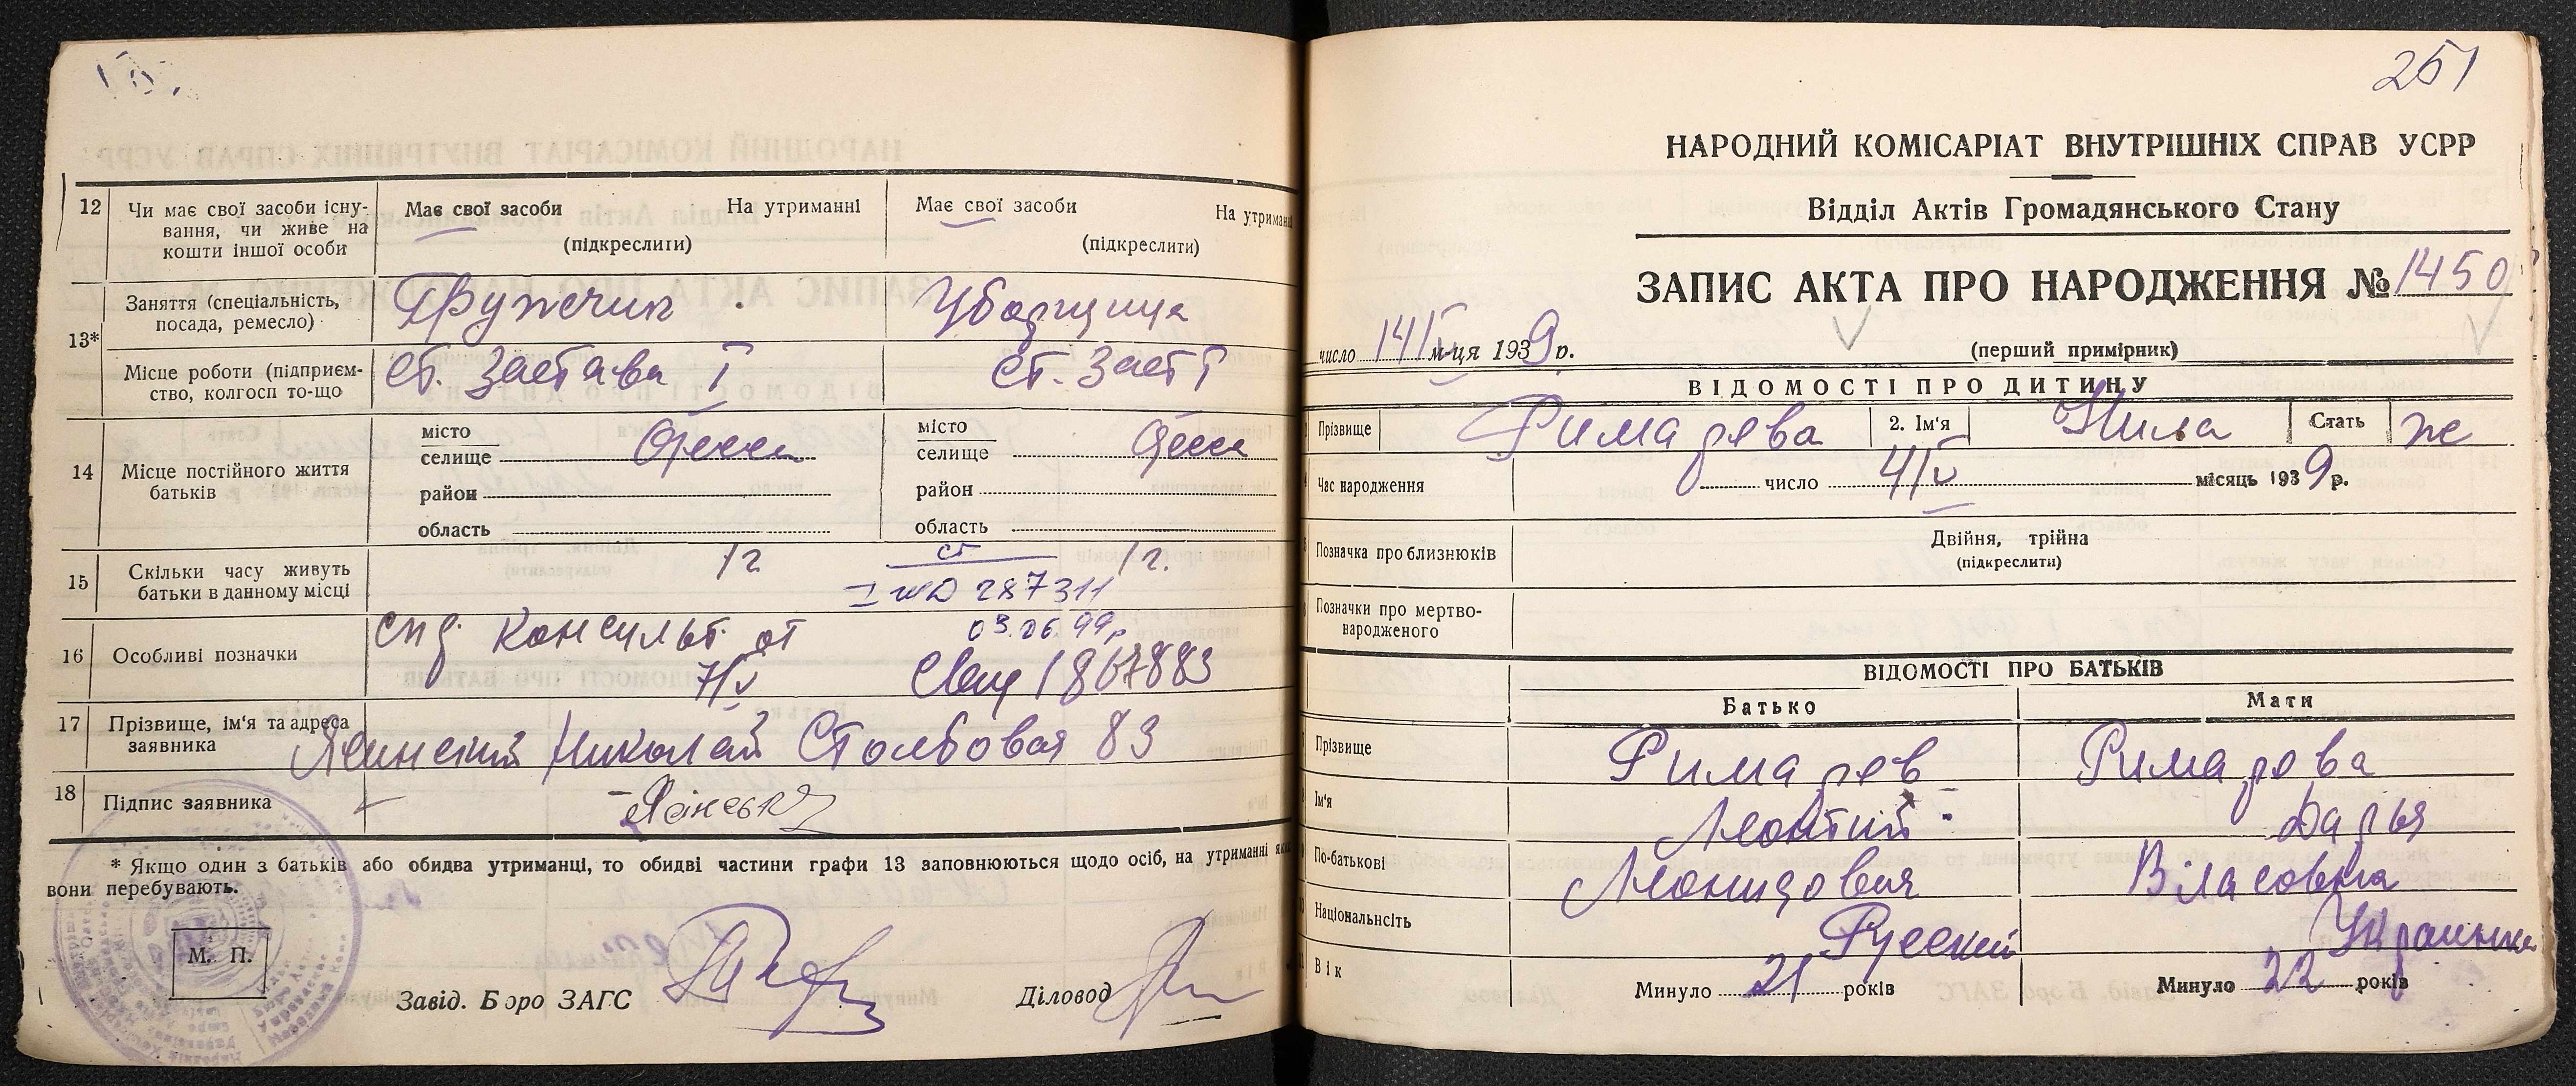 12 Чи має свої засоби існу-
вання, чи живе на
кошти іншої особи
Має свої засоби На утриманні
(підкреслити)
Має свої засоби На утриманні
(підкреслити)
13* Заняття (спеціальність,
посада, ремесло)
Гружчик
Уборщица
Місце роботи (підприєм-
ство, колгосп то-що
Ст. Застава I
Ст. Заст I
14 Місце постійного життя
батьків
місто
селище Одесса
район
область
місто
селище Одесса
район
область
15 Скільки часу живуть
батьки в данному місці
1 г
1 г.
287311
03.06.99р
16 Особливі позначки
консульт. от
7/V
Свид 1867883
17 Прізвище, ім'я та адреса
заявника
Николай Столбовая 83
18 Підпис заявника
* Якщо один з батьків або обидва утриманці, то обидві частини графи 13 заповнюються щодо осіб, на утриманні яких
вони перебувають.
М. П.
Завід. Бюро ЗАГС
Діловод
251
НАРОДНИЙ КОМІСАРІАТ ВНУТРІШНІХ СПРАВ УСРР
Відділ Актів Громадянського Стану
ЗАПИС АКТА ПРО НАРОДЖЕННЯ № 1450
число 14/V м-ця 1939 р.
(перший примірник)
ВІДОМОСТІ ПРО ДИТИНУ
Прізвище Римарева 2. Ім'я Нила Стать ж
Час народження число 4/V місяць 1939 р.
Позначка про близнюків
Двійня, трійна
(підкреслити)
Позначки про мертво-
народженого
ВІДОМОСТІ ПРО БАТЬКІВ
Батько Мати
Прізвище Римарев Римарева
Ім'я Леонтий Дарья
По-батькові Леонидович Власовна
Національність Русский Украинка
Вік Минуло 21 років Минуло 22 років